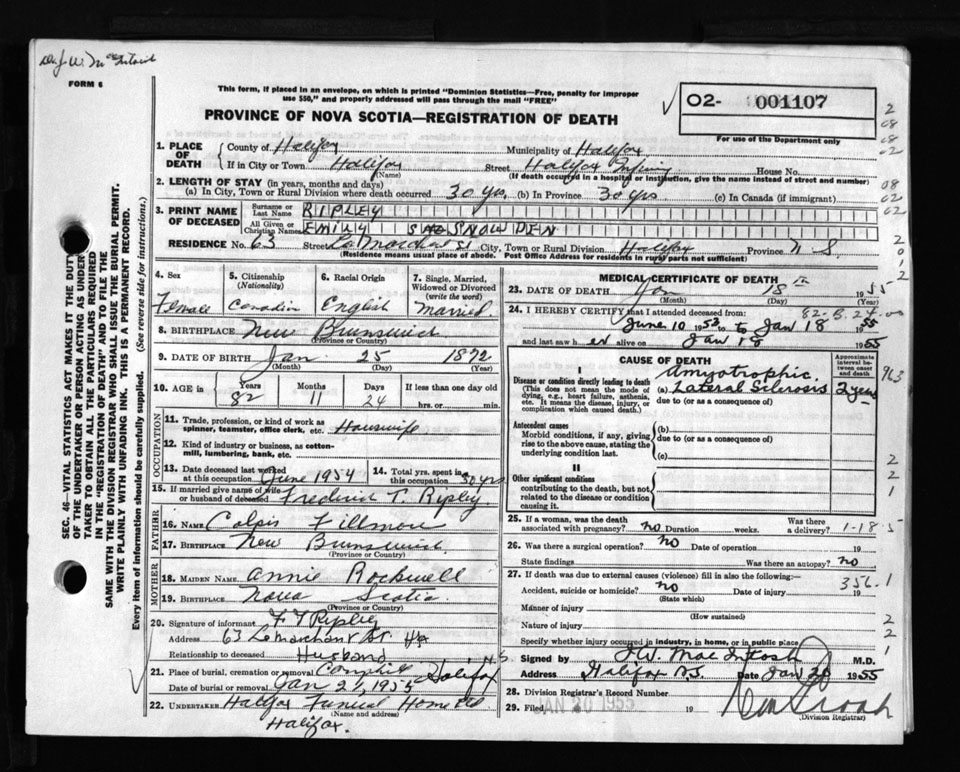 FORM 6
This form, if placed in an envelope, on which is printed "Dominion Statistics—Free, penalty for improper
use $50," and properly addressed will pass through the mail "FREE"
PROVINCE OF NOVA SCOTIA—REGISTRATION OF DEATH
02- 001107
For use of the Department only
SEC. 46—VITAL STATISTICS ACT MAKES IT THE DUTY
OF THE UNDERTAKER OR PERSON ACTING AS UNDER
TAKER TO OBTAIN ALL THE PARTICULARS REQUIRED
IN THE "REGISTRATION OF DEATH" AND TO FILE THE
SAME WITH THE DIVISION REGISTRAR WHO SHALL ISSUE THE BURIAL PERMIT.
WRITE PLAINLY WITH UNFADING INK. THIS IS A PERMANENT RECORD.
Every item of information should be carefully supplied. (See reverse side for instructions.)
1. PLACE OF DEATH County of Halifax Municipality of Halifax
If in City or Town Halifax Street Halifax House No.
(Name) (If death occurred in a hospital or institution, give the name instead of street and number)
2. LENGTH OF STAY (in years, months and days)
(a) In City, Town or Rural Division where death occurred 30 yrs. (b) In Province 30 yrs. (c) In Canada (if immigrant)
3. PRINT NAME OF DECEASED Surname or Last Name RIPLEY
All Given or Christian Names EMILY SNOWDEN
RESIDENCE No. 63 Street LeMarchant St City, Town or Rural Division Halifax Province N S.
(Residence means usual place of abode. Post Office Address for residents in rural parts not sufficient)
4. Sex Female
5. Citizenship (Nationality) Canadian
6. Racial Origin English
7. Single, Married, Widowed or Divorced (write the word) Married.
8. BIRTHPLACE New Brunswick
(Province or Country)
9. DATE OF BIRTH Jan. 25 1872
(Month) (Day) (Year)
10. AGE in Years 82 Months 11 Days 24 If less than one day old hrs. or min.
OCCUPATION
11. Trade, profession, or kind of work as spinner, teamster, office clerk, etc. Housewife
12. Kind of industry or business, as cotton-mill, lumbering, bank, etc.
13. Date deceased last worked at this occupation June 1954 14. Total yrs. spent in this occupation 30 yrs
15. If married give name of wife or husband of deceased Frederick T. Ripley
FATHER
16. NAME Fillmore
17. BIRTHPLACE New Brunswick.
(Province or Country)
MOTHER
18. MAIDEN NAME Annie Rockwell
19. BIRTHPLACE Nova Scotia.
(Province or Country)
20. Signature of informant F T Ripley
Address 63 LeMarchant St. Hfx
Relationship to deceased Husband
21. Place of burial, cremation or removal Halifax N.S
Date of burial or removal Jan 21, 1955
22. UNDERTAKER Halifax Funeral Home Ltd
(Name and address)
Halifax.
MEDICAL CERTIFICATE OF DEATH
23. DATE OF DEATH Jan 18th 1955
(Month) (Day) (Year)
24. I HEREBY CERTIFY that I attended deceased from:
June 10 1953 to Jan 18 1955
and last saw her alive on Jan 18 1955
CAUSE OF DEATH
Approximate interval between onset and death
I
Disease or condition directly leading to death
(This does not mean the mode of dying, e.g., heart failure, asthenia, etc. It means the disease, injury, or complication which caused death.)
Amyotrophic
(a) Lateral Sclerosis 2 years
due to (or as a consequence of)
Antecedent causes
Morbid conditions, if any, giving rise to the above cause, stating the underlying condition last.
(b)
due to (or as a consequence of)
(c)
II
Other significant conditions
contributing to the death, but not related to the disease or condition causing it.
25. If a woman, was the death associated with pregnancy? no Duration weeks. Was there a delivery?
1-18-5
26. Was there a surgical operation? no Date of operation 19
State findings Was there an autopsy? no
27. If death was due to external causes (violence) fill in also the following:—
356.1
Accident, suicide or homicide? no Date of injury 19
(State which)
Manner of injury
(How sustained)
Nature of injury
Specify whether injury occurred in industry, in home, or in public place
Signed by J W. MacIntosh M.D.
Address Halifax N.S. Date Jan 20 1955
28. Division Registrar's Record Number
29. Filed JAN 20 1955 19
(Division Registrar)